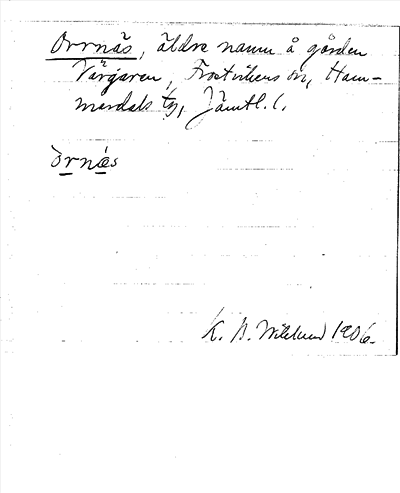 Orrnäs, äldre namn å gården
Värjaren, Frostvikens sn, Ham-
merdals tg, Jämtl. l.
òrnǽs
K. B. Wiklund 1906.